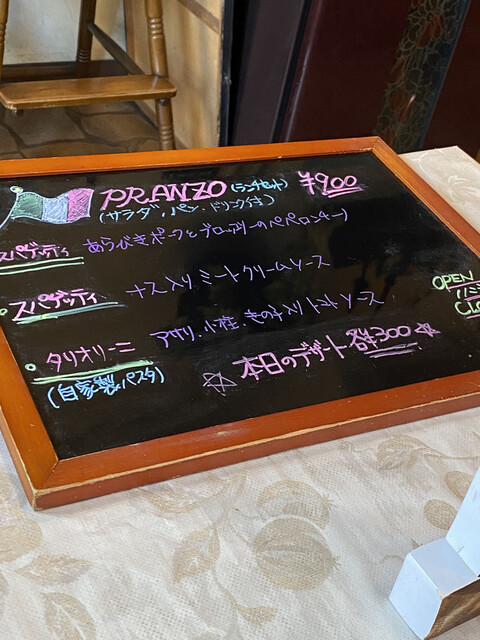 PRANZO (ランチセット) ¥900
(サラダ、パン、ドリンク付)
スパゲッティ あらびきポークとブロッコリーのペペロンチーノ
スパゲッティ ナス入りミートクリームソース
タリオリーニ アサリ、小柱、きのこ入りトマトソース
(自家製パスタ)
☆本日のデザート 各¥300☆
OPEN